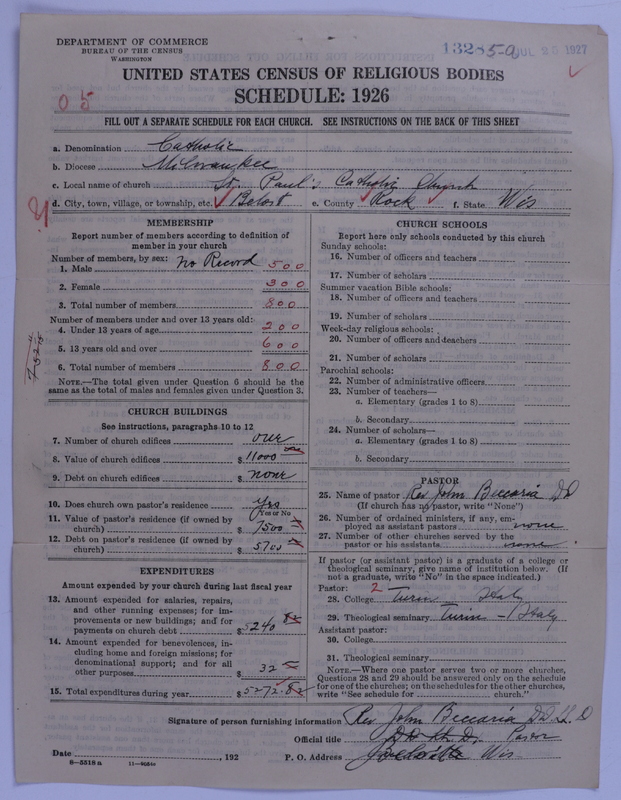 DEPARTMENT OF COMMERCE
BUREAU OF THE CENSUS
WASHINGTON
13285-a JUL 20 1927
UNITED STATES CENSUS OF RELIGIOUS BODIES
SCHEDULE: 1926
05
FILL OUT A SEPARATE SCHEDULE FOR EACH CHURCH. SEE INSTRUCTIONS ON THE BACK OF THIS SHEET
a. Denomination Catholic
b. Diocese Milwaukee
c. Local name of church St. Paul's Catholic Church
d. City, town, village, or township, etc. Beloit e. County Rock f. State Wis
MEMBERSHIP
Report number of members according to definition of
member in your church
Number of members, by sex: no Record
1. Male 500
2. Female 300
3. Total number of members 800
Number of members under and over 13 years old:
4. Under 13 years of age 200
5. 13 years old and over 600
6. Total number of members 800
NOTE.—The total given under Question 6 should be the
same as the total of males and females given under Question 3.
CHURCH BUILDINGS
See instructions, paragraphs 10 to 12
7. Number of church edifices one
8. Value of church edifices $ 11000
9. Debt on church edifices $ none
10. Does church own pastor's residence Yes
(Yes or No)
11. Value of pastor's residence (if owned by
church) $ 7500
12. Debt on pastor's residence (if owned by
church) $ 5700
EXPENDITURES
Amount expended by your church during last fiscal year
13. Amount expended for salaries, repairs,
and other running expenses; for im-
provements or new buildings; and for
payments on church debt $ 5240 82
14. Amount expended for benevolences, in-
cluding home and foreign missions; for
denominational support; and for all
other purposes $ 32
15. Total expenditures during year $ 5272.82
CHURCH SCHOOLS
Report here only schools conducted by this church
Sunday schools:
16. Number of officers and teachers
17. Number of scholars
Summer vacation Bible schools:
18. Number of officers and teachers
19. Number of scholars
Week-day religious schools:
20. Number of officers and teachers
21. Number of scholars
Parochial schools:
22. Number of administrative officers
23. Number of teachers—
a. Elementary (grades 1 to 8)
b. Secondary
24. Number of scholars—
a. Elementary (grades 1 to 8)
b. Secondary
PASTOR
25. Name of pastor Rev. John Beccaria DD
(If church has no pastor, write "None")
26. Number of ordained ministers, if any, em-
ployed as assistant pastors none
27. Number of other churches served by the
pastor or his assistants none
If pastor (or assistant pastor) is a graduate of a college or
theological seminary, give name of institution below. (If
not a graduate, write "No" in the space indicated.)
Pastor: 2
28. College Turin Italy
29. Theological seminary Turin - Italy
Assistant pastor:
30. College
31. Theological seminary
NOTE.—Where one pastor serves two or more churches,
Questions 28 and 29 should be answered only on the schedule
for one of the churches; on the schedules for the other churches,
write "See schedule for church."
Signature of person furnishing information Rev. John Beccaria DD
Official title Pastor
Date , 192 P. O. Address Wis
8—5518 a